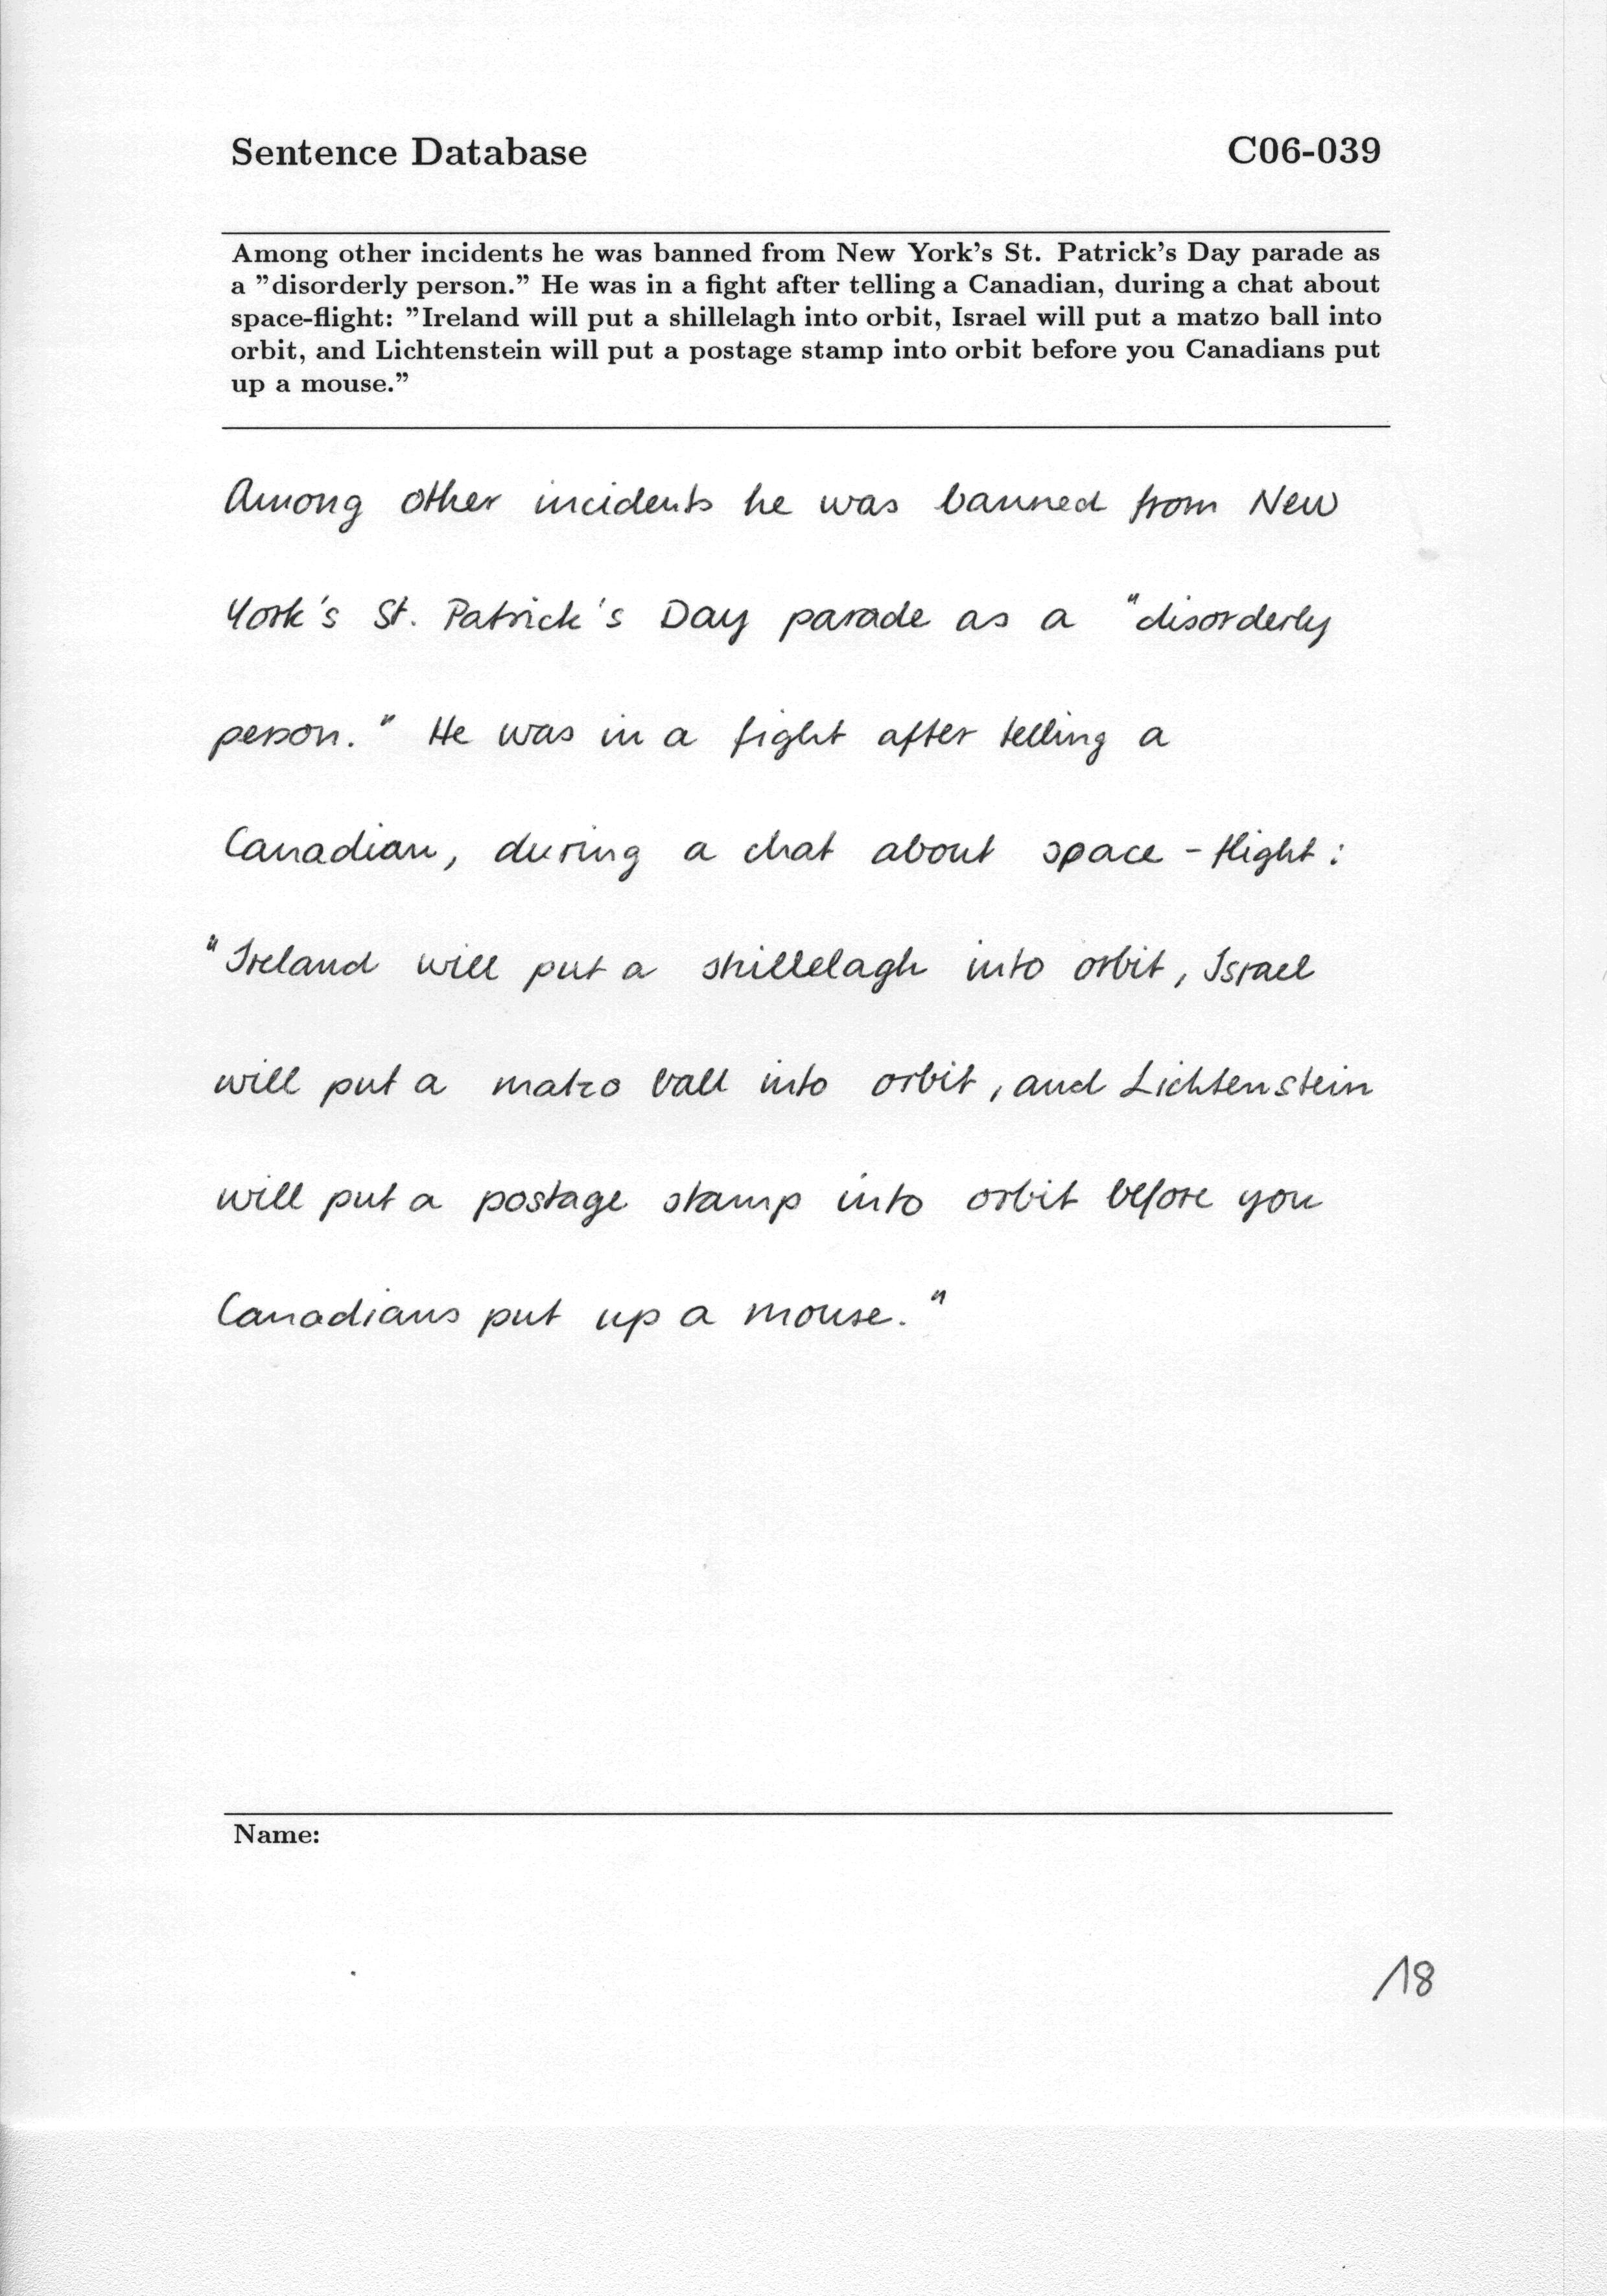 Sentence Database C06-039
Among other incidents he was banned from New York's St. Patrick's Day parade as
a "disorderly person." He was in a fight after telling a Canadian, during a chat about
space-flight: "Ireland will put a shillelagh into orbit, Israel will put a matzo ball into
orbit, and Lichtenstein will put a postage stamp into orbit before you Canadians put
up a mouse."
Among other incidents he was banned from New
York's St. Patrick's Day parade as a "disorderly
person." He was in a fight after telling a
Canadian, during a chat about space-flight:
"Ireland will put a shillelagh into orbit, Israel
will put a matzo ball into orbit, and Lichtenstein
will put a postage stamp into orbit before you
Canadians put up a mouse."
Name:
18